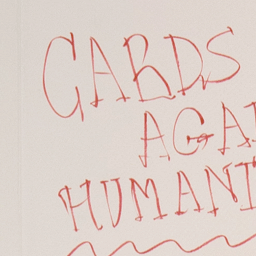 CARDS
AGAI
HUMANI